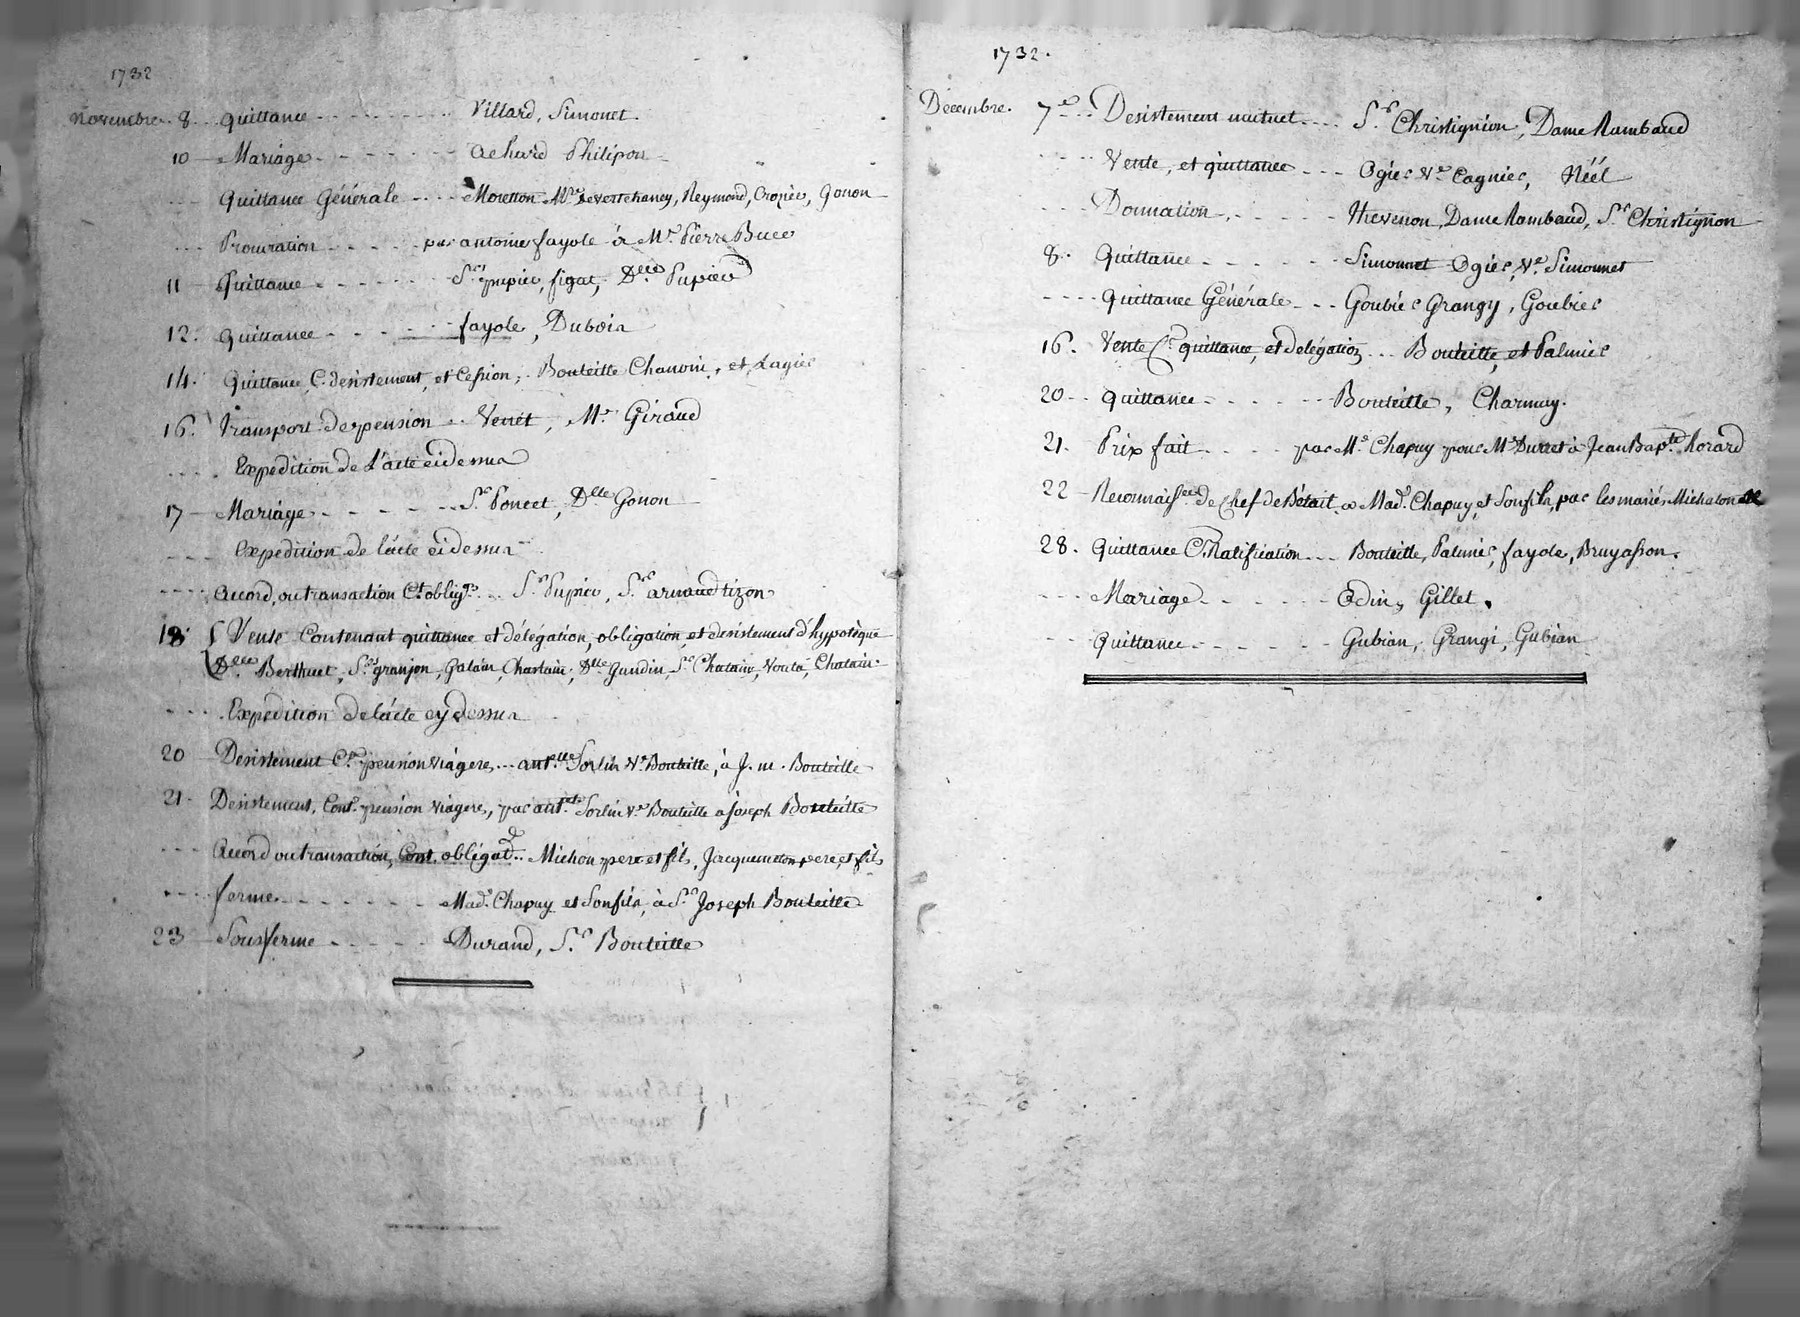 1732
Novembre. 8. Quittance Villard, Simonet.
10 Mariage achard Philipon
Quittance Générale Moretton Reymond, Cropier, Gonon
Procuration par antoine fayole à Mr. Pierre Buer
11 Quittance Sr. pupier, figat, Dlle Pupier
12. Quittance fayole, Duboin
14. Quittance C. desistement, et Cession, Bouteille Chanoni, et Lagier
16. Transport de pension Verret, Mr. Giraud
Expedition de L'acte cidessus
17 Mariage Sr. Poncet, Dlle Gonon
Expedition de l'acte cidessus
accord, ou transaction Ct. oblign. Sr. Pupier, Sr. arnaud tizon
18. Vente Contenant quittance et délégation, obligation, et desistement d'hypotèque
Dlle. Berthuet, Sr. granjon, Galain, Chastain, Dlle Gaudin, Sr. Chatain, Chatain.
Expedition de l'acte cy dessus
20 Desistement Ct. pension viagere, antlle Sorlin Ve. Bouteille, à J. m. Bouteille
21. Desistement, Cont. pension viagere, par antlle. Sorlin Ve Bouteille à Joseph Bouteille
Accord ou transaction, Cont. obligat. Michon pere et fils, Jacquemeton pere, et fils
ferme Mad. Chapuy et Son fils, à Sr. Joseph Bouteille
23 Sous ferme Durand, Sr. Bouteille
1732.
Décembre. 7e Desistement mutuel Sr. Christignion, Dame Rambaud
Vente, et quittance Ogier Ve Cagnier, Néel
Donnation thevenon, Dame Rambaud, Sr. Christignon
8. Quittance Simonnet Ogier, Ve. Simonnet
Quittance Générale Goubier Grangy, Goubier
16. Vente Ct. quittance, et délégation Bouteille, et Palmier
20 quittance Bouteille, Charmuy.
21. Prix fait par Me. Chapuy pour Mr Durret à Jean Bapte. horard
22 Reconnaissce de Chef de Bétail à Mad. Chapuy, et Son fils, par les mariés Michalon
28. Quittance Ct. Ratification Bouteille, Palmier, fayole, Bruyasson.
Mariage Odin, Gillet.
Quittance Gubian, Grangi, Gubian